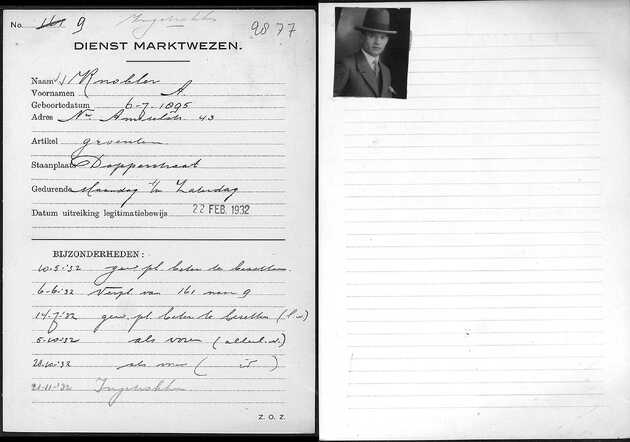 No. 161 9
Ingetrokken
9877
DIENST MARKTWEZEN.
Naam Knobler
Voornamen A.
Geboortedatum 6-7-1895
Adres Nwe Amstelstr. 43
Artikel groenten
Staanplaats Dapperstraat
Gedurende Maandag t/m Zaterdag
Datum uitreiking legitimatiebewijs 22 FEB. 1932
BIJZONDERHEDEN:
10.5.'32 gew. pl. beter te bezetten.
6-6-'32 Verpl. van 161 naar 9
14-7-'32 gew. pl. beter te bezetten
5-10-'32 als voren
20.10.'32 als voren
21-11-'32 Ingetrokken
Z. O. Z.